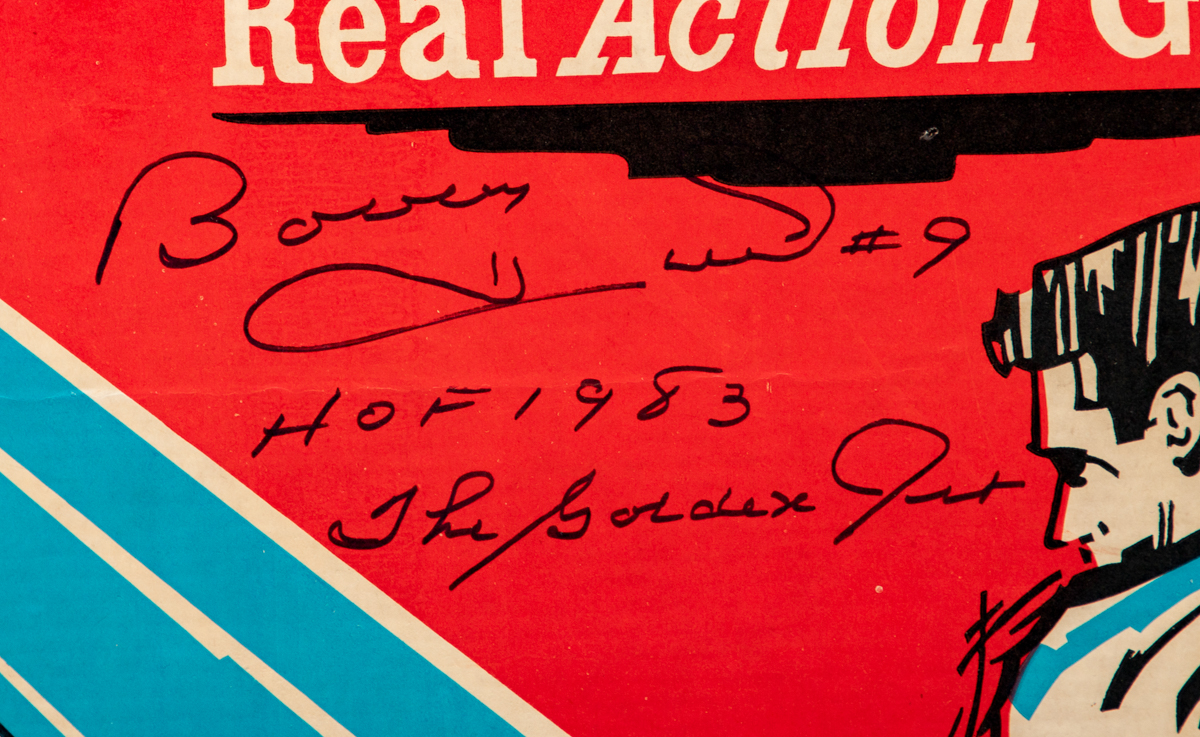 Real Action G
Bobby Hull #9
HOF 1983
The Golden Jet